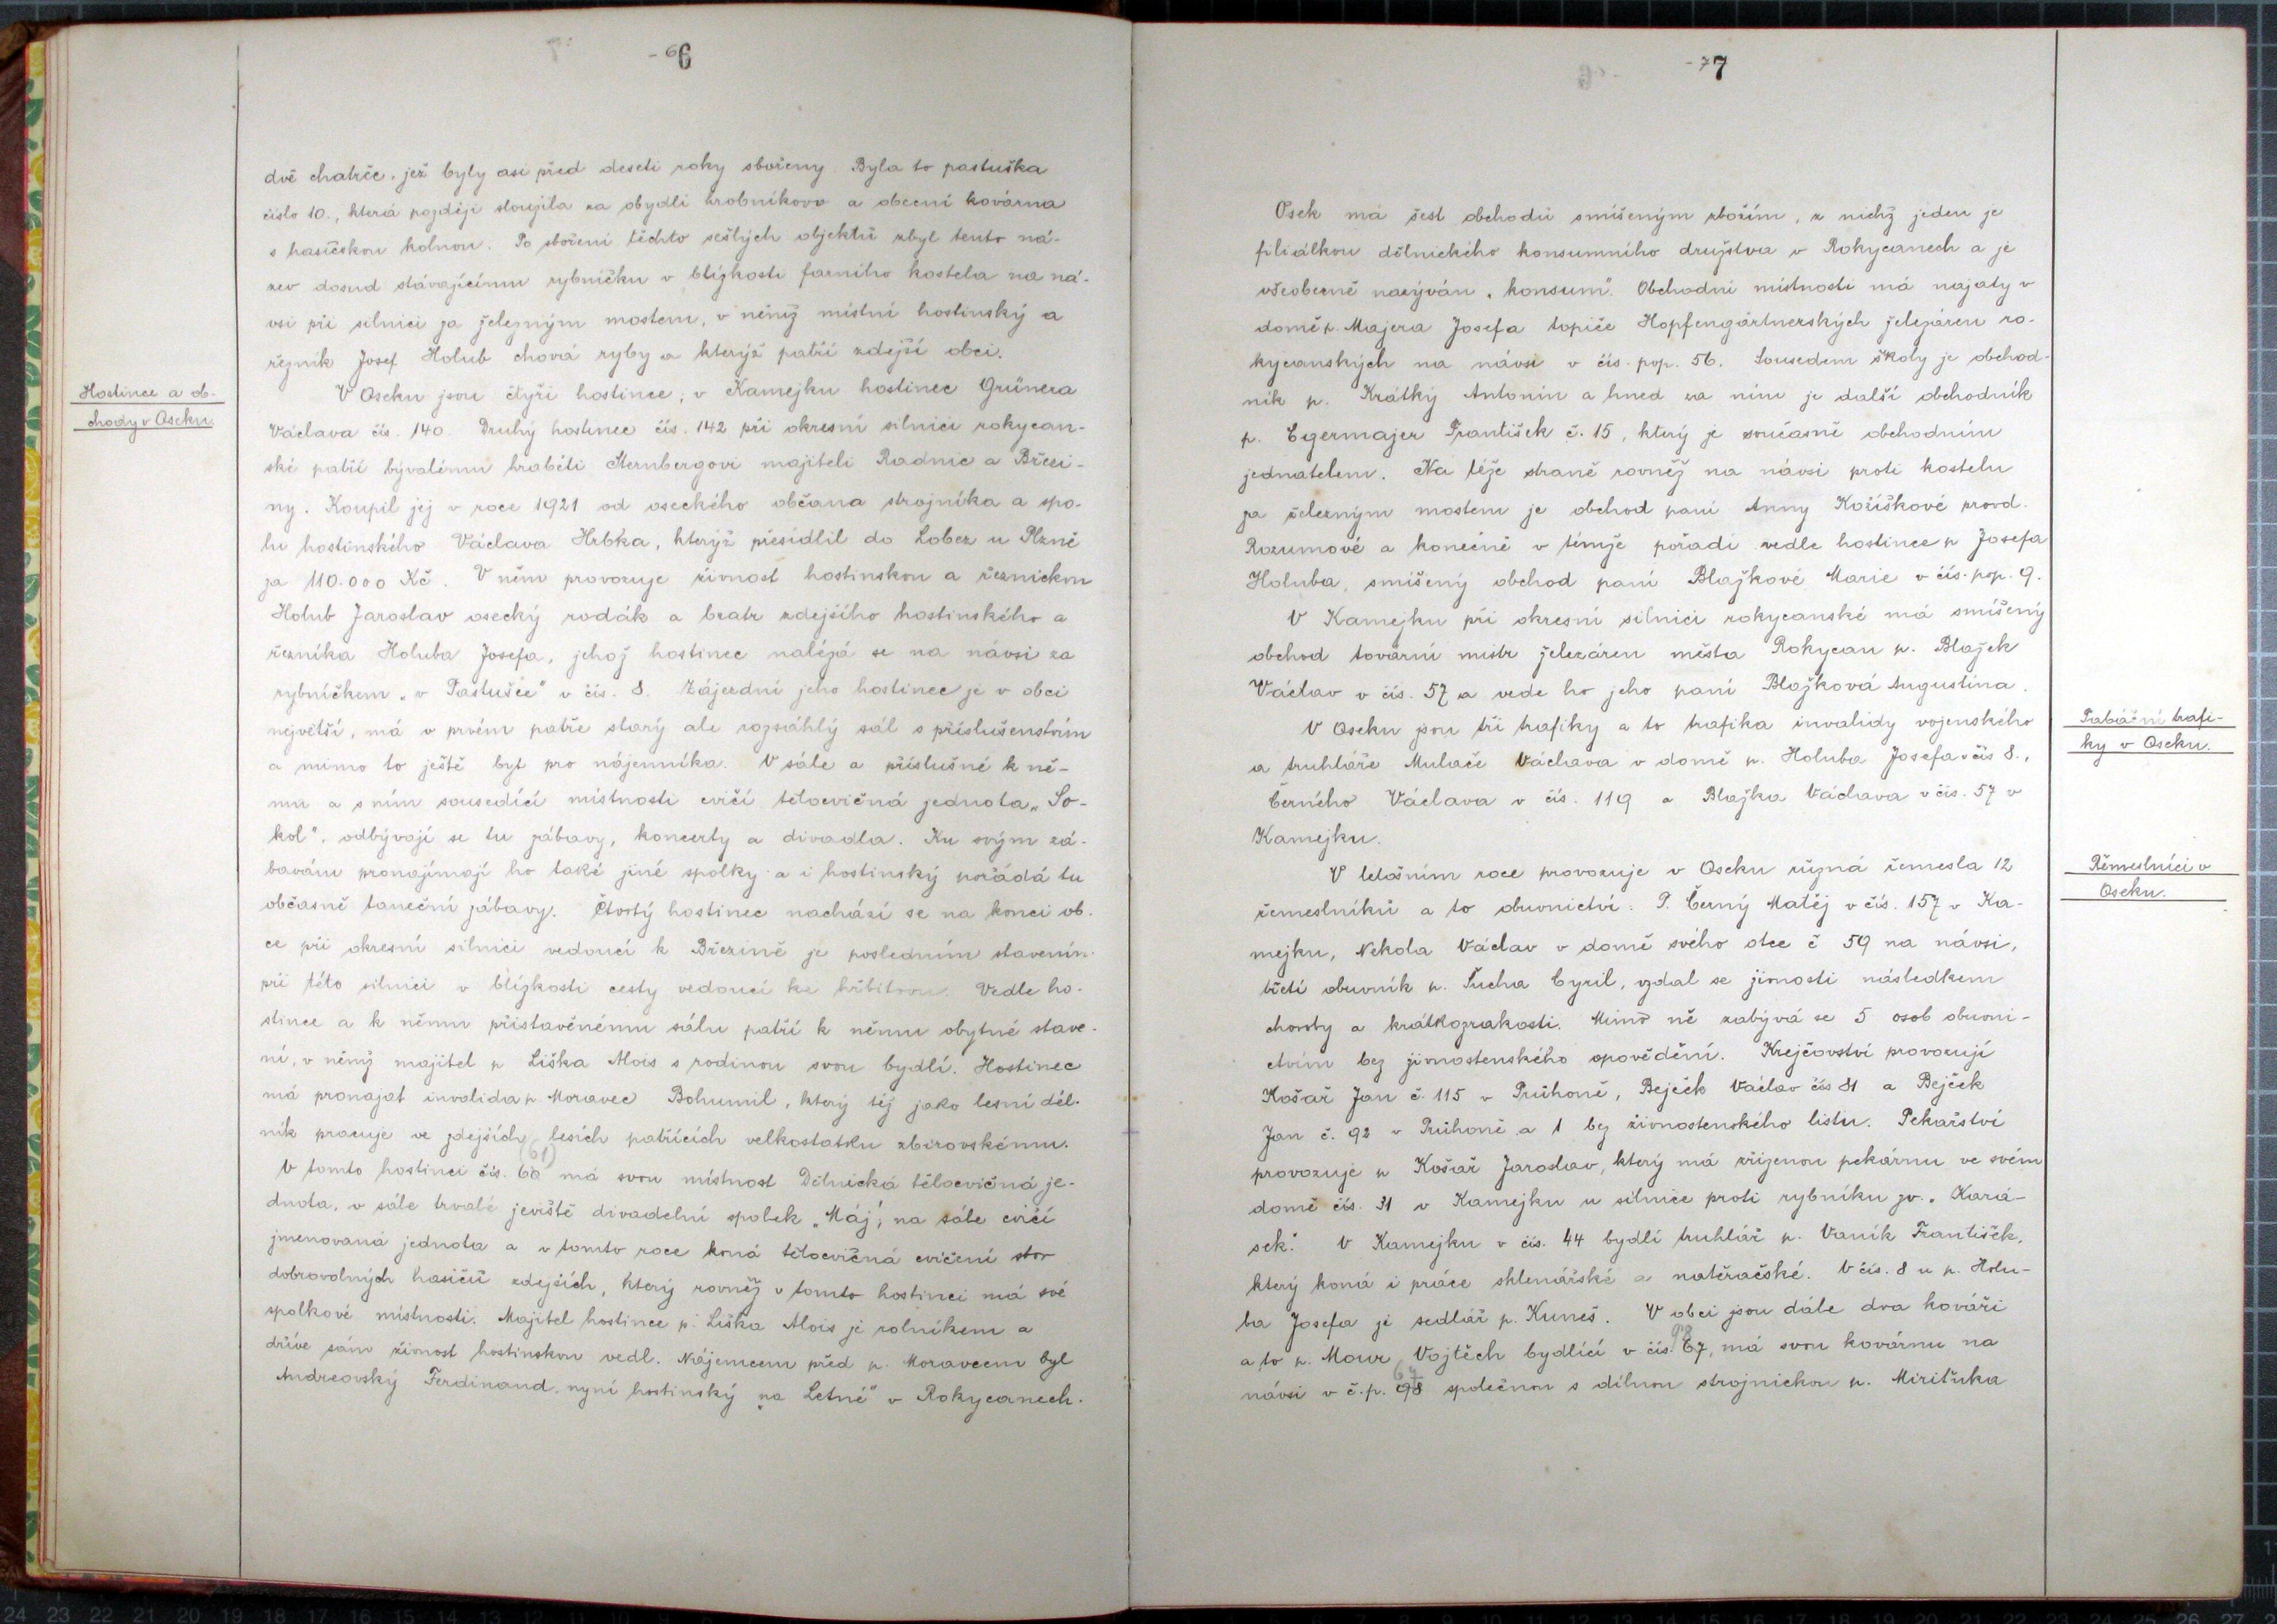 - 6 6
dvě chatrče, jež byly asi před deseti roky zbořeny. Byla to pastuška
číslo 10., která později sloužila za obydlí hrobníkovo a obecní kovárna
s hasičskou kolnou. Po zboření těchto sešlých objektů zbyl tento ná-
zev dosud stávajícímu rybníčku v blízkosti farního kostela na ná-
vsi při silnici za železným mostem, v němž místní hostinský a
řezník Josef Holub chová ryby a kterýž patří zdejší obci.
Hostince a ob-
chody v Oseku.
V Oseku jsou čtyři hostince; v Kamejku hostinec Grünera
Václava čís. 140. Druhý hostinec čís. 142 při okresní silnici rokycan-
ské patří bývalému hraběti Šternbergovi majiteli Radnic a Březi-
ny. Koupil jej v roce 1921 od oseckého občana strojníka a spo-
lu hostinského Václava Hrbka, kterýž přesídlil do Lobez u Plzně
za 110.000 Kč. V něm provozuje živnost hostinskou a řeznickou
Holub Jaroslav osecký rodák a bratr zdejšího hostinského a
řezníka Holuba Josefa, jehož hostinec nalézá se na návsi za
rybníčkem „v Pastušce" v čís. 8. Zájezdní jeho hostinec je v obci
největší, má v prvém patře starý ale rozsáhlý sál s příslušenstvím
a mimo to ještě byt pro nájemníka. V sále a příslušné k ně-
mu a s ním sousedící místnosti cvičí tělocvičná jednota „So-
kol", odbývají se tu zábavy, koncerty a divadla. Ku svým zá-
bavám pronajímají ho také jiné spolky a i hostinský pořádá tu
občasně taneční zábavy. Čtvrtý hostinec nachází se na konci ob-
ce při okresní silnici vedoucí k Březině je posledním stavením
při této silnici v blízkosti cesty vedoucí ke hřbitovu. Vedle ho-
stince a k němu přistavěnému sálu patří k němu obytné stave-
ní, v němž majitel p Liška Alois s rodinou svou bydlí. Hostinec
má pronajat invalida p. Moravec Bohumil, který též jako lesní děl-
ník pracuje ve zdejších lesích patřících velkostatku zbirovskému.
V tomto hostinci čís. 60 (61) má svou místnost Dělnická tělocvičná je-
dnota, v sále trvalé jeviště divadelní spolek „Máj", na sále cvičí
jmenovaná jednota a v tomto roce koná tělocvičná cvičení sbor
dobrovolných hasičů zdejších, který rovněž v tomto hostinci má své
spolkové místnosti. Majitel hostince p. Liška Alois je rolníkem a
dříve sám živnost hostinskou vedl. Nájemcem před p. Moravcem byl
Andreovský Ferdinand, nyní hostinský „na Letné" v Rokycanech.
- 7 7
Osek má šest obchodů smíšeným zbožím, z nichž jeden je
filiálkou dělnického konsumního družstva v Rokycanech a je
všeobecně nazýván „konsum". Obchodní místnosti má najaty v
domě p. Majera Josefa topiče Hopfengärtnerských železáren ro-
kycanských na návsi v čís. pop. 56. Sousedem školy je obchod-
ník p. Krátký Antonín a hned za ním je další obchodník
p. Egermajer František č. 15, který je současně obchodním
jednatelem. Na téže straně rovněž na návsi proti kostelu
za železným mostem je obchod paní Anny Kožíškové provd.
Rozumové a konečně v témže pořadí vedle hostince p Josefa
Holuba, smíšený obchod paní Blažkové Marie v čís. pop. 9.
V Kamejku při okresní silnici rokycanské má smíšený
obchod tovární mistr železáren města Rokycan p. Blažek
Václav v čís. 57 a vede ho jeho paní Blažková Augustina.
Tabáční trafi-
ky v Oseku.
V Oseku jsou tři trafiky a to trafika invalidy vojenského
a truhláře Mulače Václava v domě p. Holuba Josefa v čís 8.,
Černého Václava v čís. 119 a Blažka Václava v čís. 57 v
Kamejku.
Řemeslníci v
Oseku.
V letošním roce provozuje v Oseku různá řemesla 12
řemeslníků a to obuvnictví: P. Černý Matěj v čís. 157 v Ka-
mejku, Nekola Václav v domě svého otce č 59 na návsi,
třetí obuvník p. Ťucha Cyril, vzdal se živnosti následkem
choroby a krátkozrakosti. Mimo ně zabývá se 5 osob obuvni-
ctvím bez živnostenského opovědění. Krejčovství provozují
Košař Jan č. 115 v Průhoně, Bejček Václav čís 81 a Bejček
Jan č. 92 v Průhoně a 1 bez živnostenského listu. Pekařství
provozuje p Košař Jaroslav, který má zřízenou pekárnu ve svém
domě čís. 31 v Kamejku u silnice proti rybníku zv. „Kará-
sek". V Kamejku v čís. 44 bydlí truhlář p. Vaník František,
který koná i práce sklenářské a natěračské. V čís. 8 u p. Holu-
ba Josefa je sedlář p. Kuneš. V obci jsou dále dva kováři
a to p. Mour Vojtěch bydlící v čís. 67, 98 má svou kovárnu na
návsi v č.p. 98 67 společnou s dílnou strojnickou p. Miriťuka